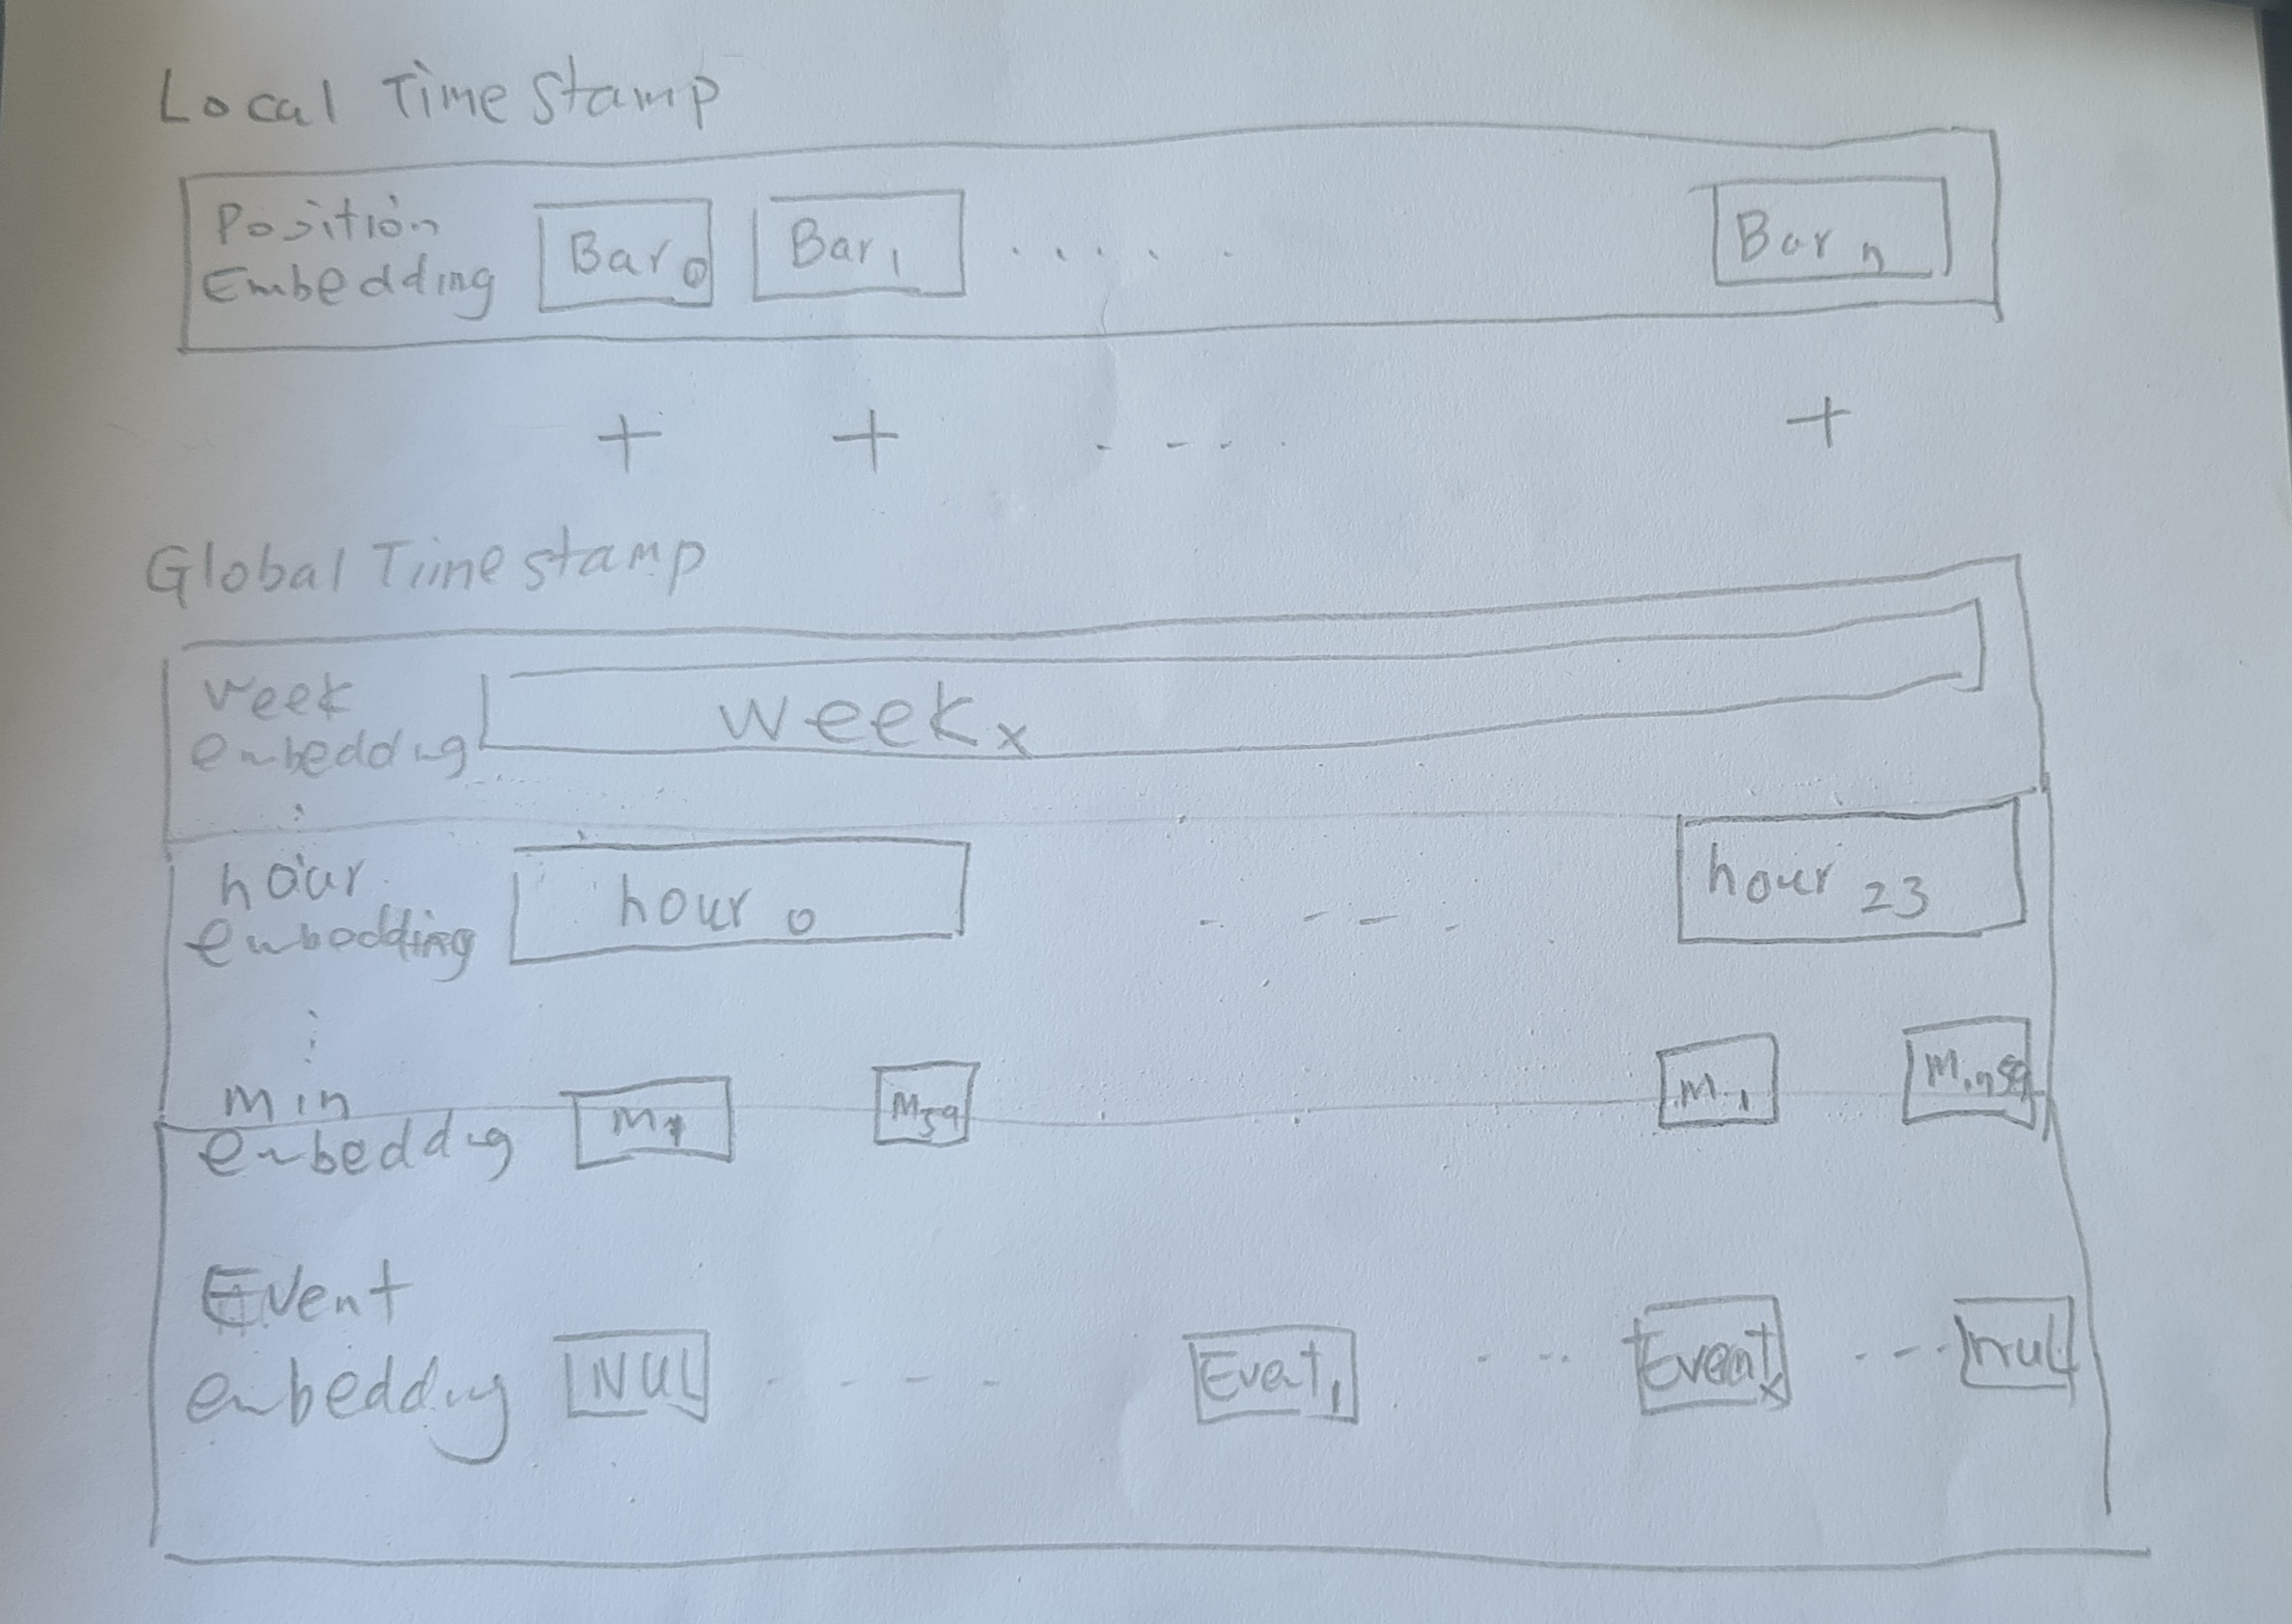 Local Time Stamp
Position
Embedding
Bar 0
Bar 1
.....
Bar n
+ + - - - - +
Global Time stamp
week
embedding
week x
hour
embedding
hour 0
- - - -
hour 23
min
embedding
M59
M1
Min59
Event
embedding
NUL
- - - -
Event1
- - -
Eventx
- - -
Null